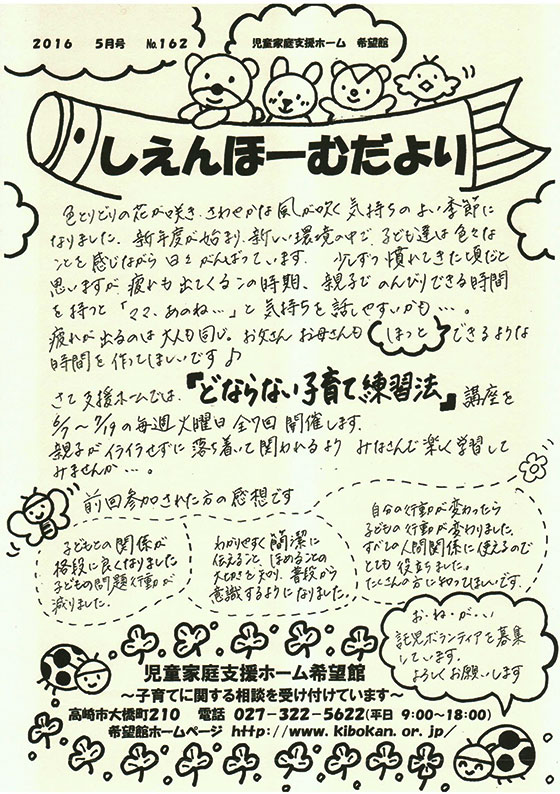 2016 5月号 No.162
児童家庭支援ホーム 希望館
しえんほーむだより
色とりどりの花が咲き、さわやかな風が吹く気持ちのよい季節に
なりました。新年度が始まり、新しい環境の中で、子ども達は色々な
ことを感じながら日々がんばっています。 少しずつ慣れてきた頃だと
思いますが、疲れも出てくるこの時期、親子でのんびりできる時間
を持つと「ママ、あのね…」と気持ちを話しやすいかも…。
疲れが出るのは大人も同じ。お父さんお母さんも ほっと できるような
時間を作ってほしいです♪
さて支援ホームでは、『どならない子育て練習法』講座を
6/7～7/19の毎週火曜日全7回開催します。
親子がイライラせずに落ち着いて関われるよう みなさんで楽しく学習して
みませんか…。
前回参加された方の感想です
子どもとの関係が
格段に良くなりました
子どもの問題行動が
減りました。
わかりやすく簡潔に
伝えること、ほめることの
大切さを知り、普段から
意識するようになりました。
自分の行動が変わったら
子どもの行動が変わりました。
すべての人間関係に使えるので
とても役立ちました。
たくさんの方に知ってほしいです。
お・ね・が・い
託児ボランティアを募集
しています。
よろしくお願いします
児童家庭支援ホーム希望館
～子育てに関する相談を受け付けています～
高崎市大橋町210 電話 027-322-5622(平日 9:00～18:00)
希望館ホームページ http://www.kibokan.or.jp/